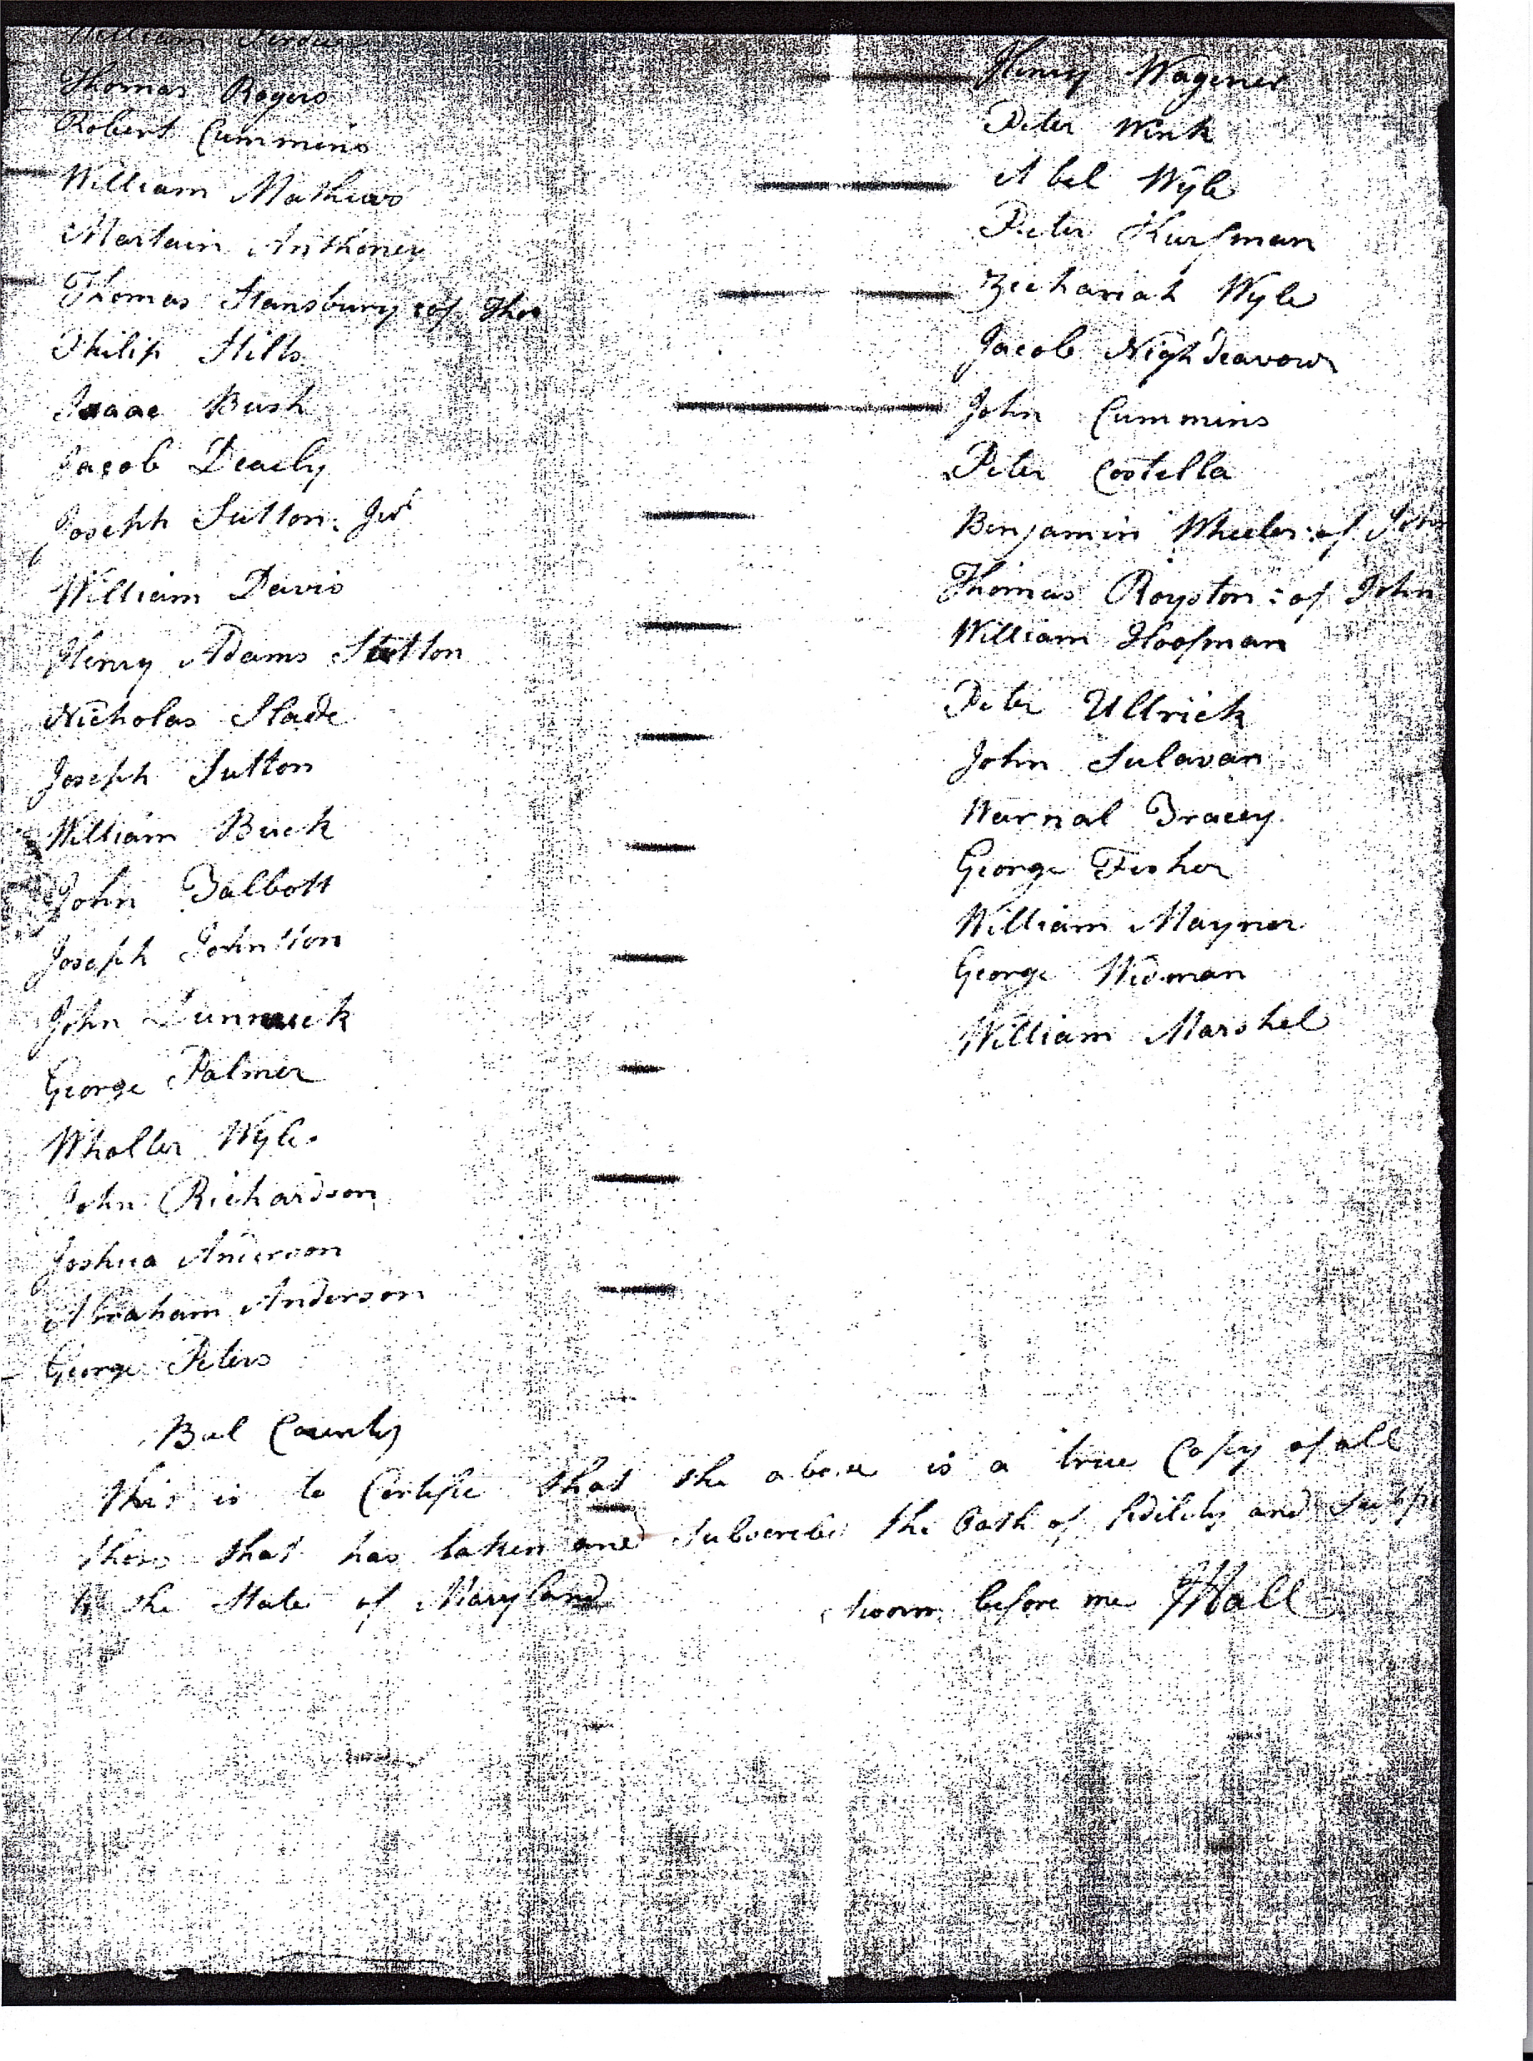 William
Thomas Rogers
Robert Cummins
William Mathews
Martain Anthoney
Thomas Stansbury : of Thos
Philip Hills
Isaac Bush
Jacob Deachy
Joseph Sutton: Jur
William Davis
Henry Adams Stutton
Nicholas Slade
Joseph Sutton
William Buck
John Talbott
Joseph Johnston
John
George Palmer
Whaller Wyle
John Richardson
Joshua Anderson
Abraham Anderson
George Peters
Henry Wagener
Peter Wink
Abel Wyle
Peter Kursman
Zechariah Wyle
Jacob
John Cummins
Peter Costella
Benjamin Wheeler: of John
Thomas Royston: of John
William Hoofman
Peter Ullrich
John Sulavan
Warnal Tracey
George Fisher
William Mayner
George Wisman
William Marshel
Bal County
this is to Certifie that the above is a true Copy of all
thos that has taken and Subscribe the Oath of fidility and
to the State of Maryland sworn before me J Hall